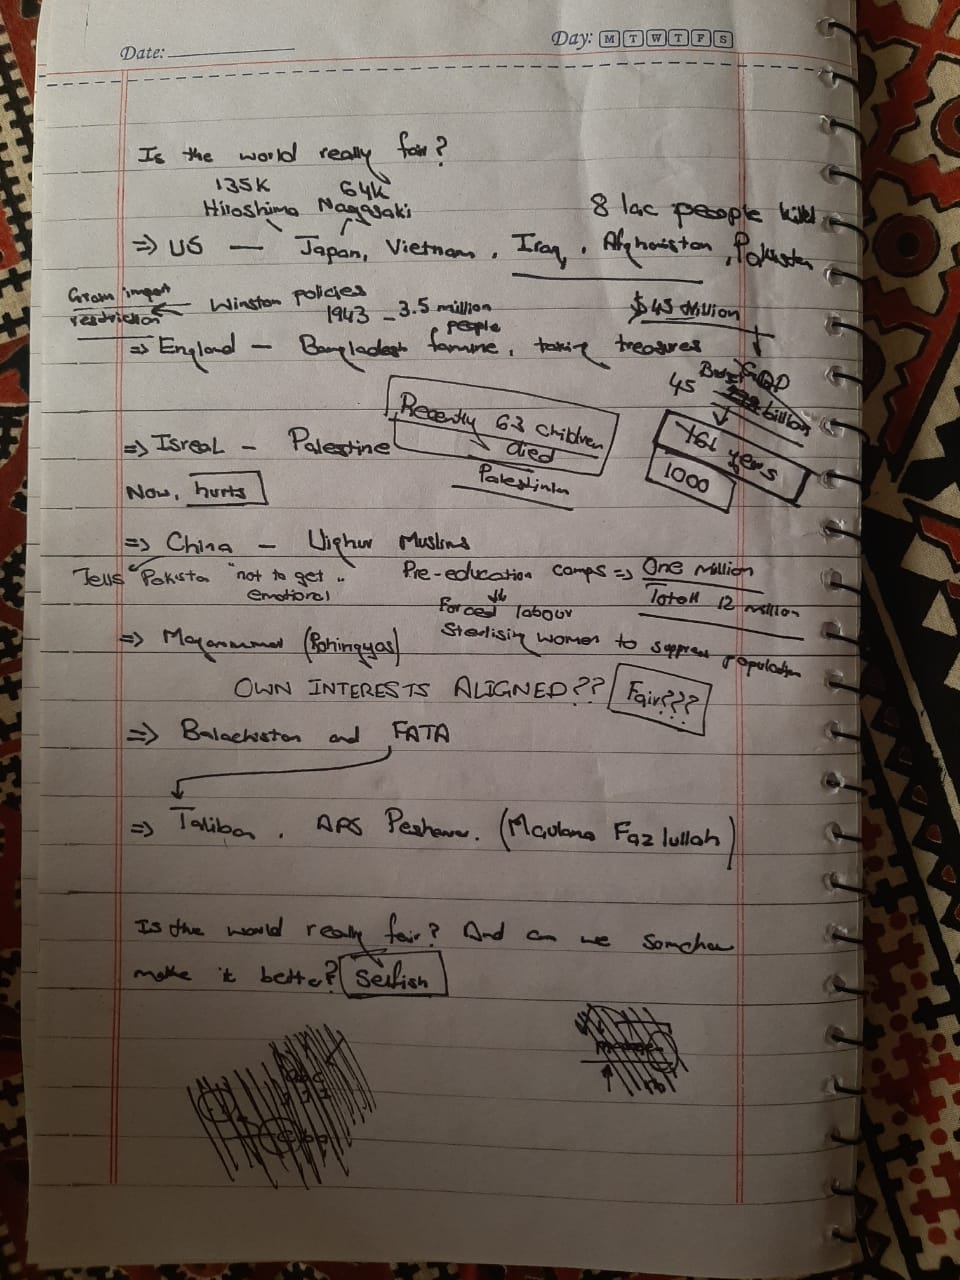 Date:
Day: M T W T F S
Is the world really fair?
135K 64K
Hiroshima Nagasaki
8 lac people killed
=> US — Japan, Vietnam, Iraq, Afghanistan, Pakistan
Grain import
restriction
Winston policies
1943 - 3.5 million
people
$45 trillion
=> England — Bangladesh famine, taking treasures
GDP
45 billion
Recently 63 children
died
Palestinian
=> Isreal - Palestine
161 years
1000
Now, hurts
=> China — Uighur Muslims
Tells Pakista "not to get
emotional
Pre-education camps => One million
Total 12 million
Forced labour
Sterlising women to suppress population
=> (Rohingyas)
OWN INTERESTS ALIGNED?? Fair???
=> Balachistan and FATA
=> Taliban, APS Peshawar. (Maulana Fazlullah)
Is the world really fair? And can we somehow
make it better? Selfish